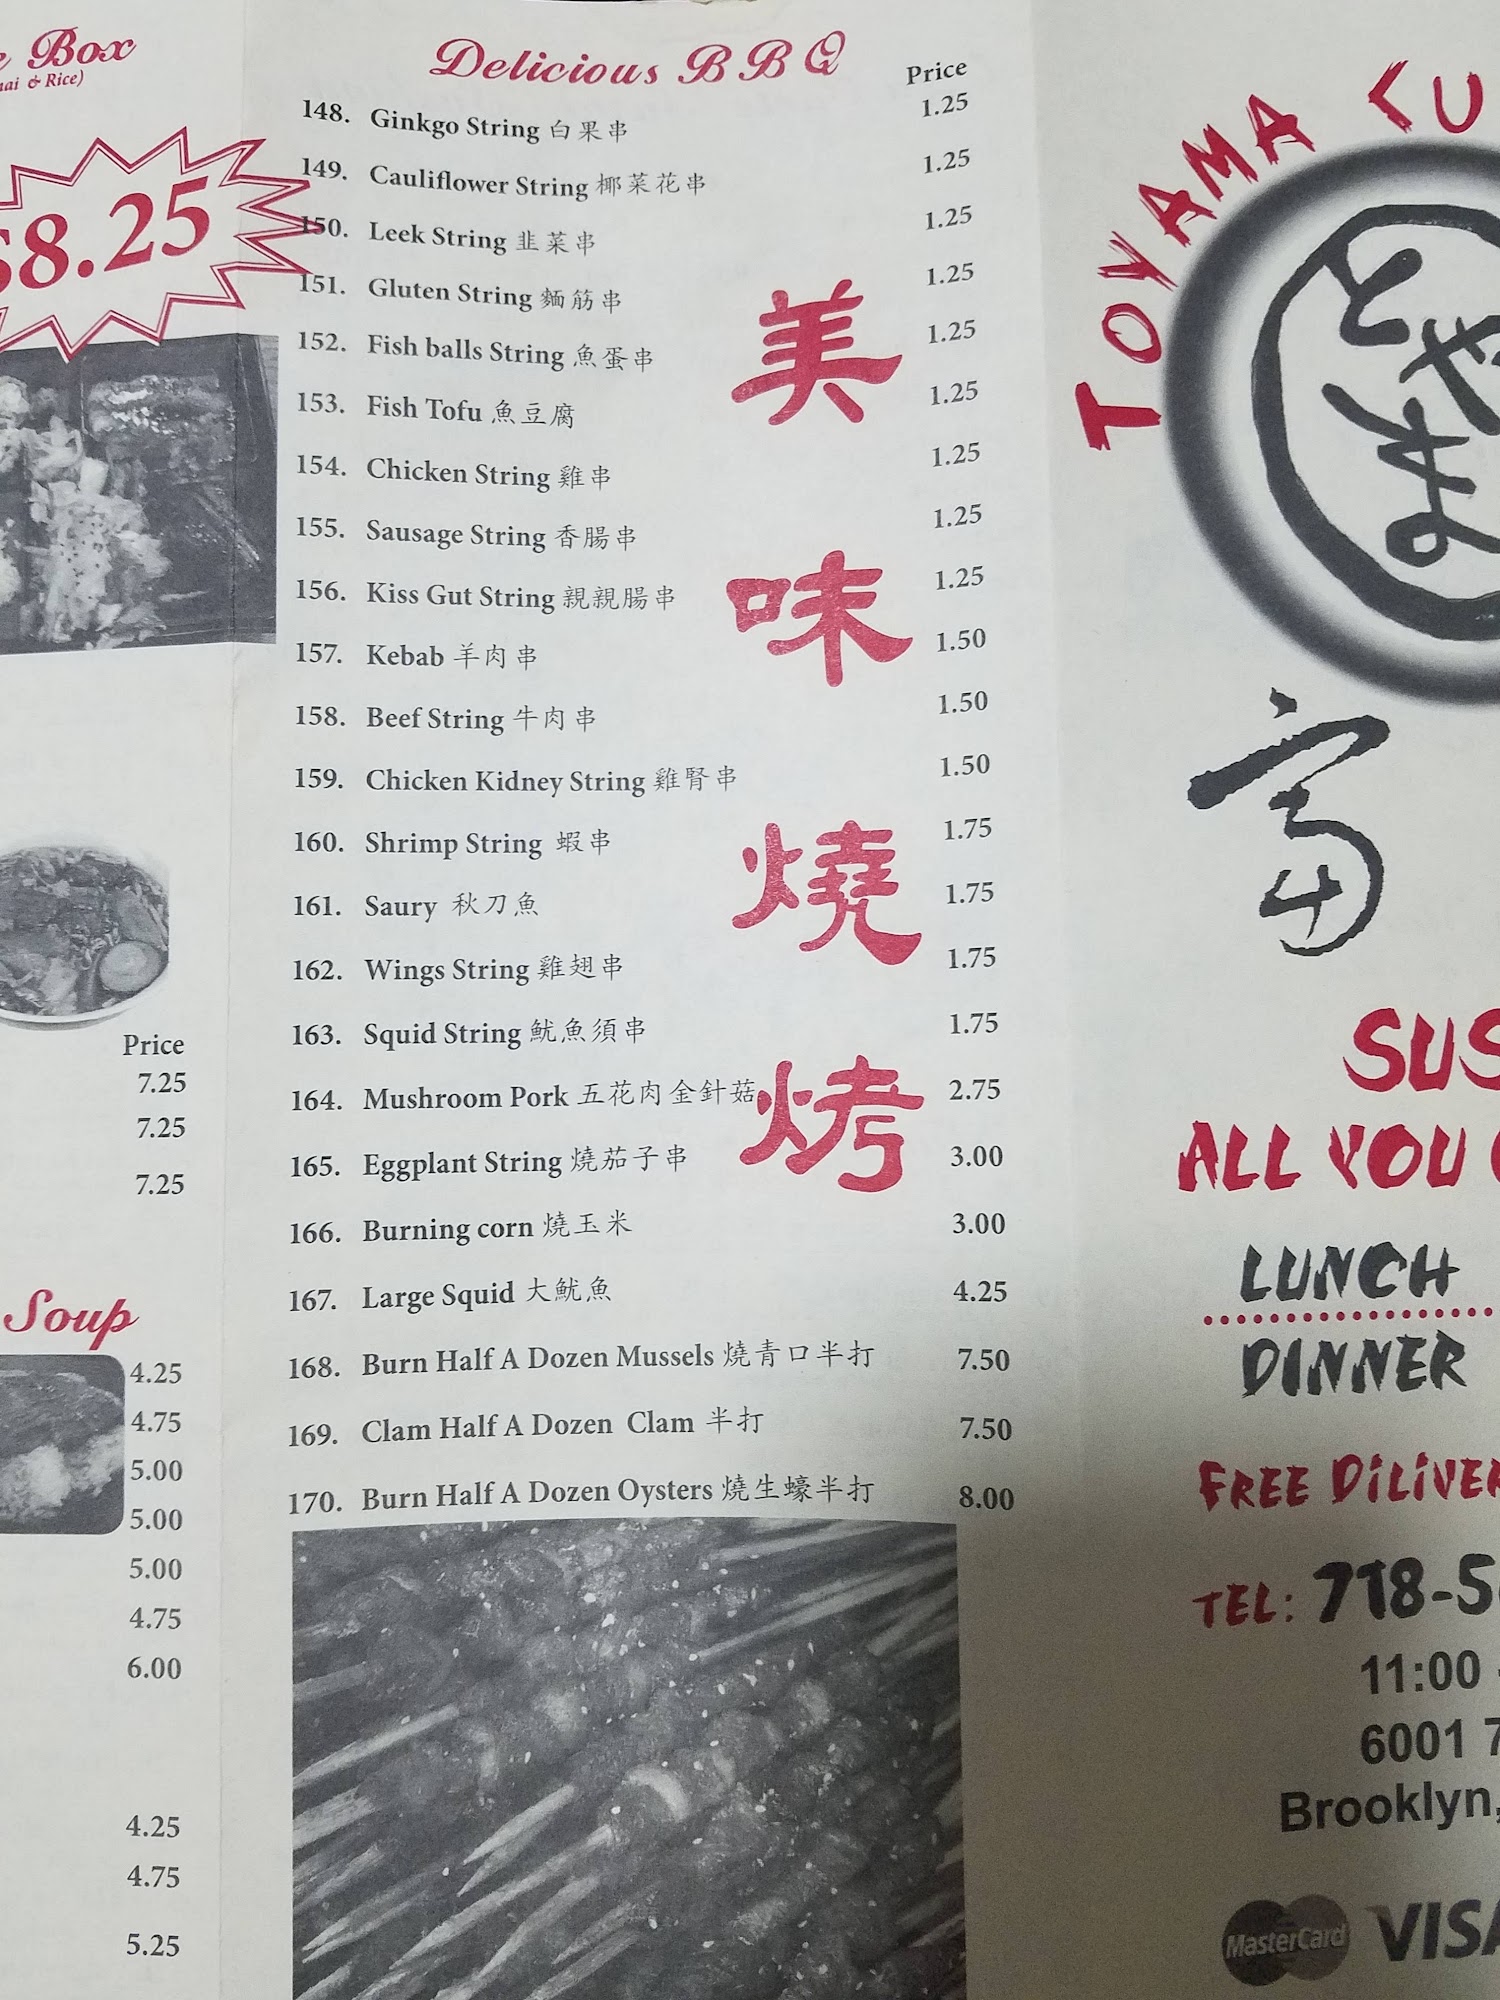 Box
& Rice)
$8.25
Price
7.25
7.25
7.25
Soup
4.25
4.75
5.00
5.00
5.00
4.75
6.00
4.25
4.75
5.25
Delicious BBQ
Price
148. Ginkgo String 白果串 1.25
149. Cauliflower String 椰菜花串 1.25
150. Leek String 韭菜串 1.25
151. Gluten String 麵筋串 1.25
152. Fish balls String 魚蛋串 1.25
153. Fish Tofu 魚豆腐 1.25
154. Chicken String 雞串 1.25
155. Sausage String 香腸串 1.25
156. Kiss Gut String 親親腸串 1.25
157. Kebab 羊肉串 1.50
158. Beef String 牛肉串 1.50
159. Chicken Kidney String 雞腎串 1.50
160. Shrimp String 蝦串 1.75
161. Saury 秋刀魚 1.75
162. Wings String 雞翅串 1.75
163. Squid String 魷魚須串 1.75
164. Mushroom Pork 五花肉金針菇 2.75
165. Eggplant String 燒茄子串 3.00
166. Burning corn 燒玉米 3.00
167. Large Squid 大魷魚 4.25
168. Burn Half A Dozen Mussels 燒青口半打 7.50
169. Clam Half A Dozen Clam 半打 7.50
170. Burn Half A Dozen Oysters 燒生蠔半打 8.00
美
味
燒
烤
TOYAMA
とやま
富
ALL YOU
LUNCH
DINNER
FREE
TEL: 718-5
11:00
6001 7
Brooklyn,
MasterCard VISA